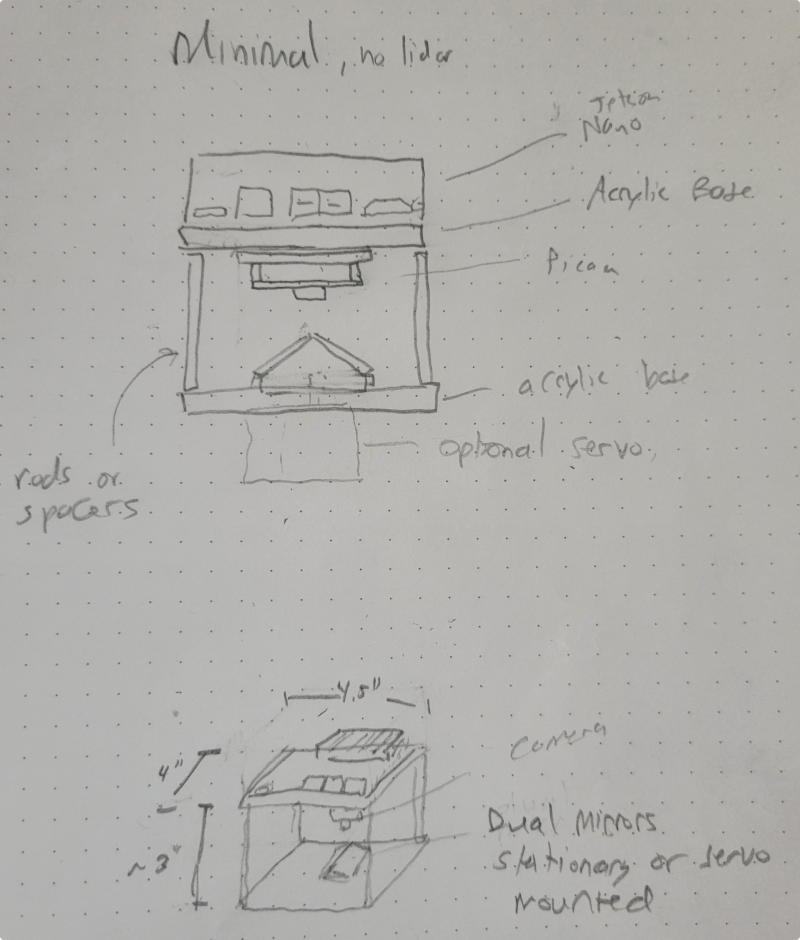 Minimal, no lidar
Jetson
Nano
Acrylic Base
Picam
acrylic base
optional servo
rods or
spacers
4.5"
4"
~3"
Camera
Dual Mirrors
stationary or servo
mounted